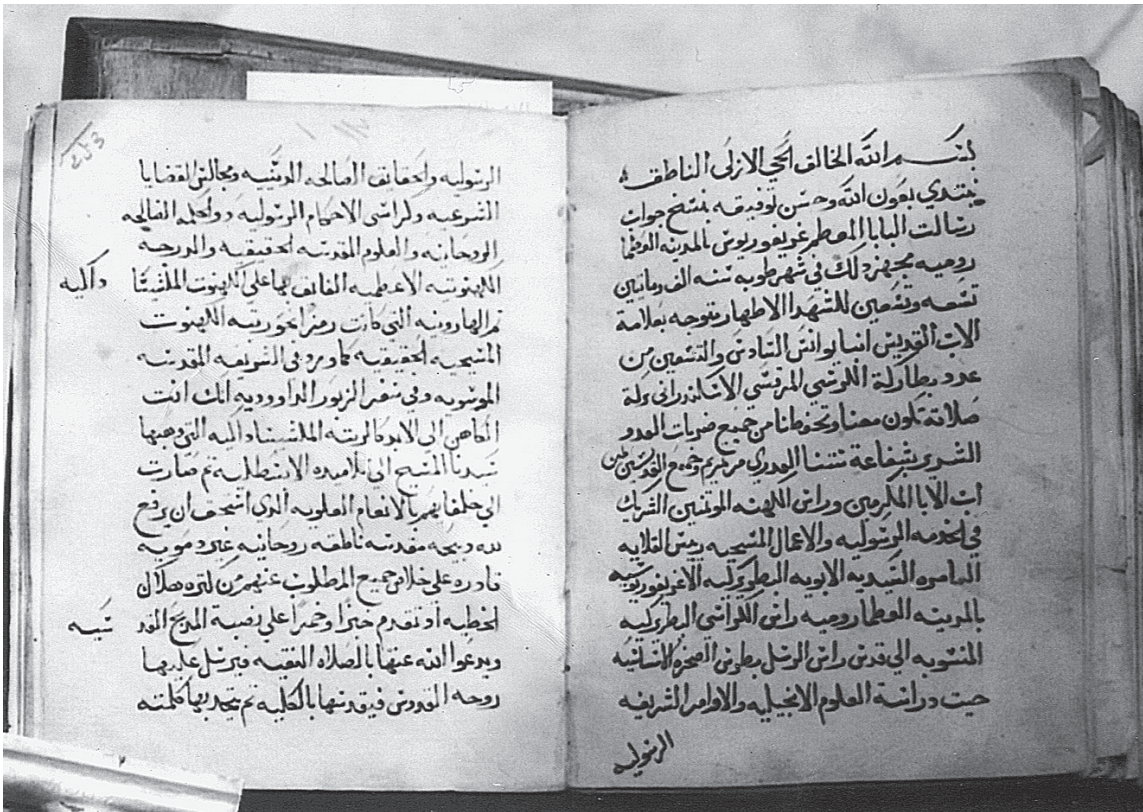 بسم الله الخالق الحي الازلي الناطق
نبتدي بعون الله وحسن توفيقه بنسخ جواب
رسالت البابا المعظم غريغوريوس بالمدينه العظما
روميه مجهز دلك في شهر طوبه سنه الف ومايتين
تسعه وتسعين للشهدا الاطهار متوجه بعلامة
الاب القديس انبا يوانس السادس والتسعين من
عدد بطاركة الكرسي المرقسي الاسكندراني بركة
صلاته تكون معنا وتحفظنا من جميع ضربات العدو
الشرير بشفاعة ستنا العدري مرتمريم وجميع القديسين امين
اب الابا المكرمين وراس الكهنه الموتمنين الشريك
في الخدمه الرسوليه والاعمال المسيحيه رييس القلايه
العامره السيديه الابويه البطريركيه الاغريغوريوسيه
بالمدينه العظما روميه راس الكراسي البطريركيه
المنسوبه الي قدس راس الرسل بطرس الصخره الاساسيه
حيت دراسة العلوم الانجيليه والاوامر الشريفه
الرسوليه
الرسوليه والحقايق الصالحه الدينيه ومجالس القضايا
الشرعيه وكراسي الاحكام الرسوليه دو الحله الصالحه
الروحانيه والعلوم المقدسه الحقيقيه والدرجه
الكهنوتيه الاعظميه الفايق بها علي الكهنوت الملشيسا داكيه
تم الهارونيه التي كانت رمزا لحورييه الكهنوت
المسيحيه الحقيقيه كما ورد في الشريعه المقدسه
الموسويه وفي سفر الزبور الداووديه انك انت
الكاهن الي الابد كالرتبه الملشيساداكيه التي وهبها
سيدنا المسيح الي تلاميده الاسطليه تم صارت
الي خلفايهم بالانعام العلويه الدي استحق ان يرفع
لله دبيحه مقدسه ناطقه روحانيه غير دمويه
قادره علي خلاص جميع المطلوب عنهم من كتره هلاك
الخطيه او تقدم خبزا وخمرا علي نصبة المدبح المقد سيه
ويدعوا الله عنها بالصلاه النقيه فيرسل عليها
روحه القدوس فيقدسها بالكليه تم يتحد بها كلمته